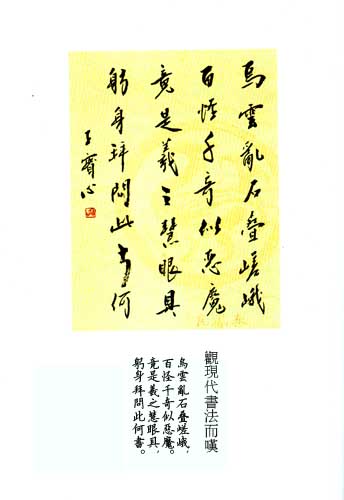 烏雲亂石疊嵯峨
百怪千奇似惡魔
竟是羲之慧眼具
躬身拜問此書何
觀現代書法而嘆
烏雲亂石疊嵯峨，
百怪千奇似惡魔。
竟是羲之慧眼具，
躬身拜問此何書。